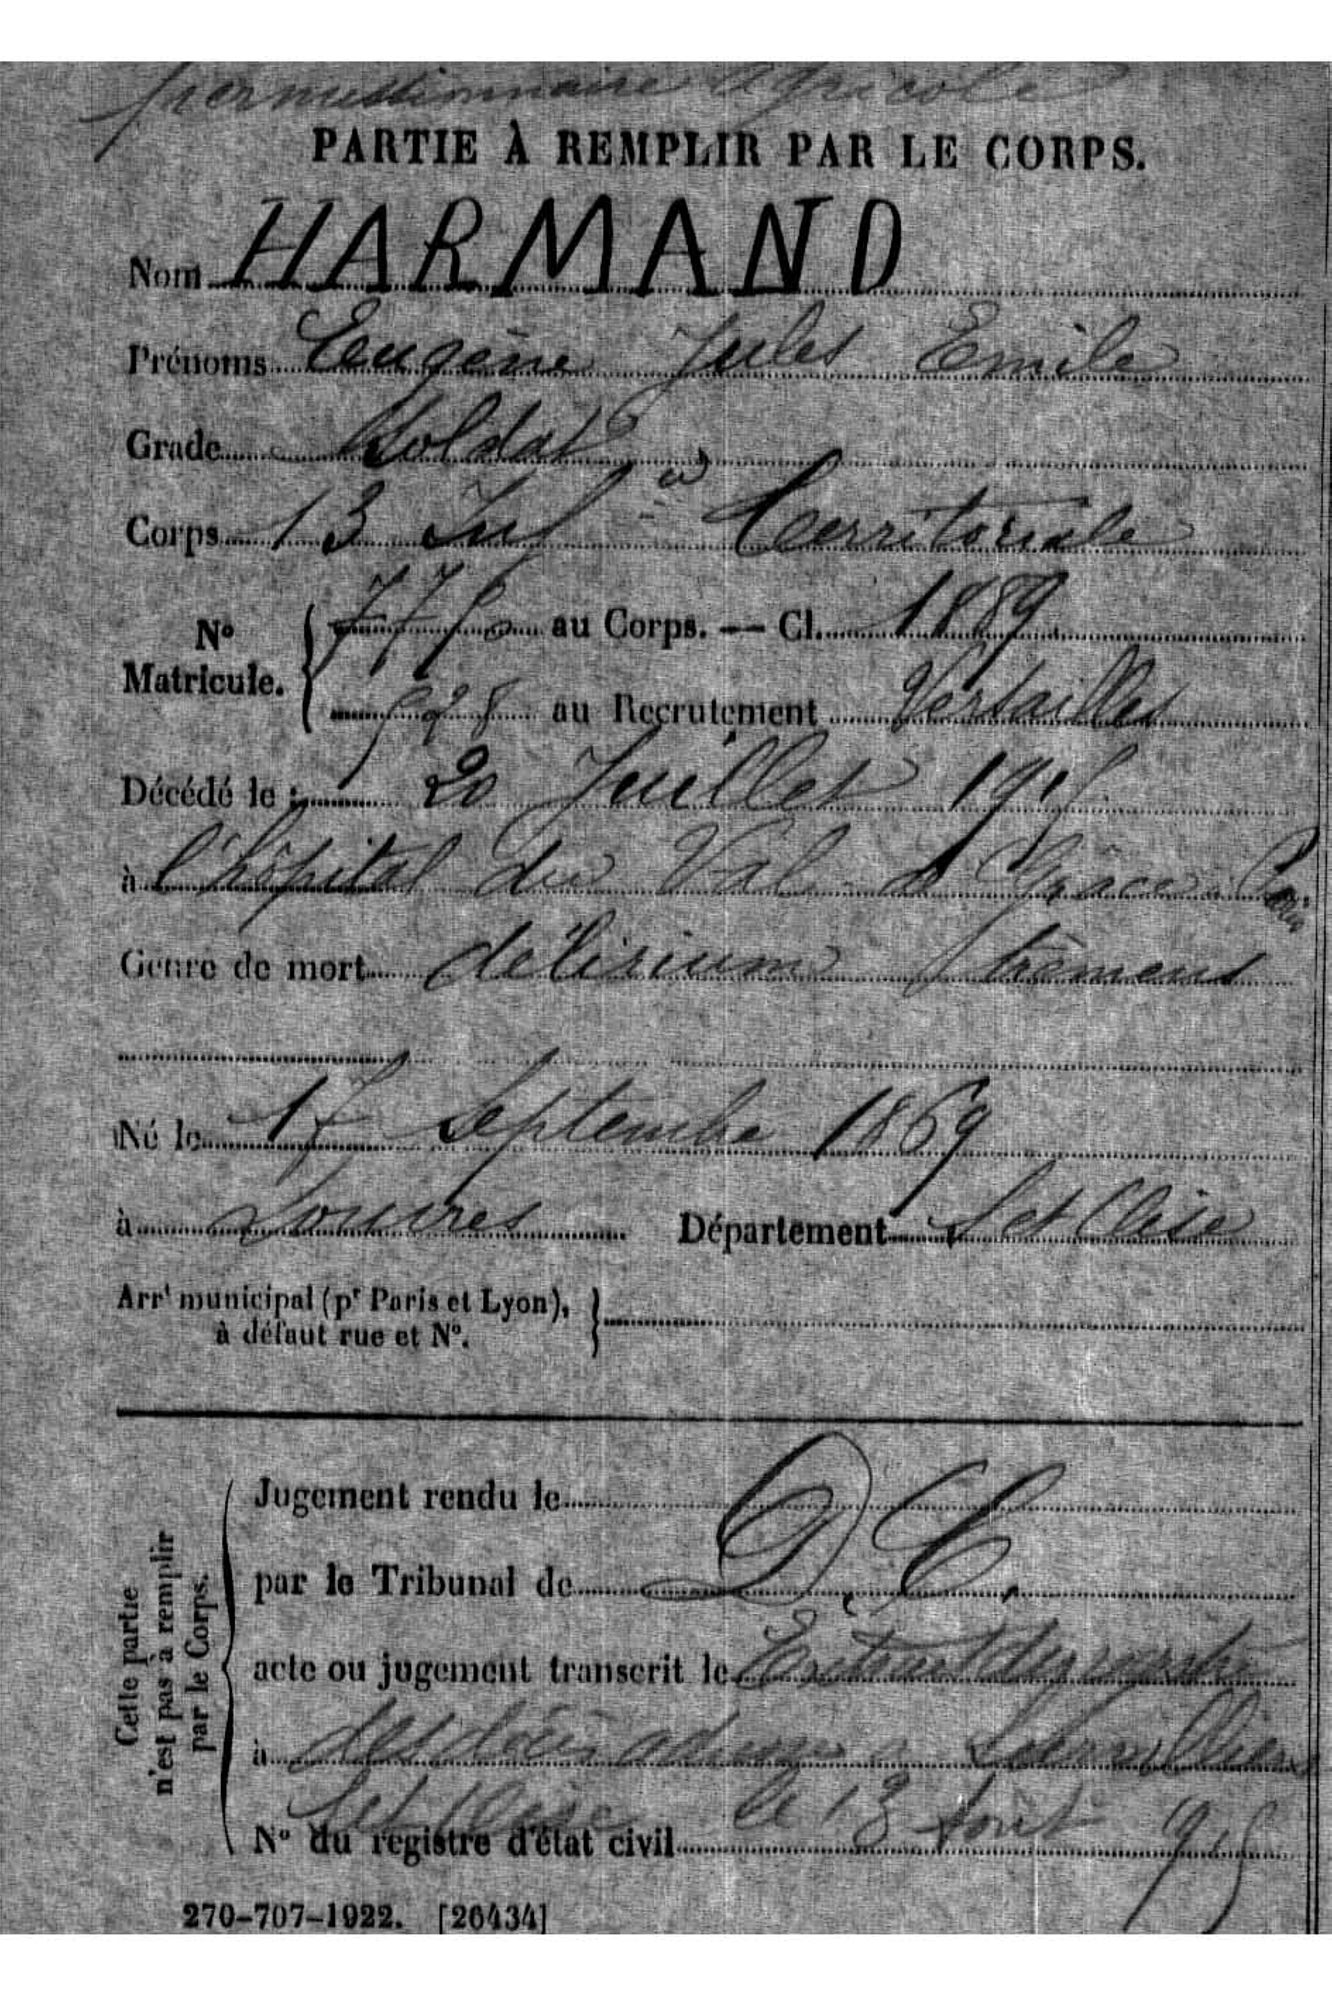 permissionnaire agricole
PARTIE À REMPLIR PAR LE CORPS.
Nom HARMAND
Prénoms Eugène Jules Emile
Grade Soldat
Corps 13 Territoriale
N° Matricule. { 7750 au Corps. — Cl. 1889
528 au Recrutement Versailles
Décédé le : 20 Juillet 1915
à l'hôpital du Val de Grâce à Paris
Genre de mort délirium trémens
Né le 17 Septembre 1869
à Louvres Département S et Oise
Arrᵗ municipal (pʳ Paris et Lyon), à défaut rue et N°. }
Cette partie n'est pas à remplir par le Corps.
Jugement rendu le
par le Tribunal de D. C.
acte ou jugement transcrit le
à des décès adressé à
S et Oise le 13 Août 1915
N° du registre d'état civil
270-707-1922. [26434]